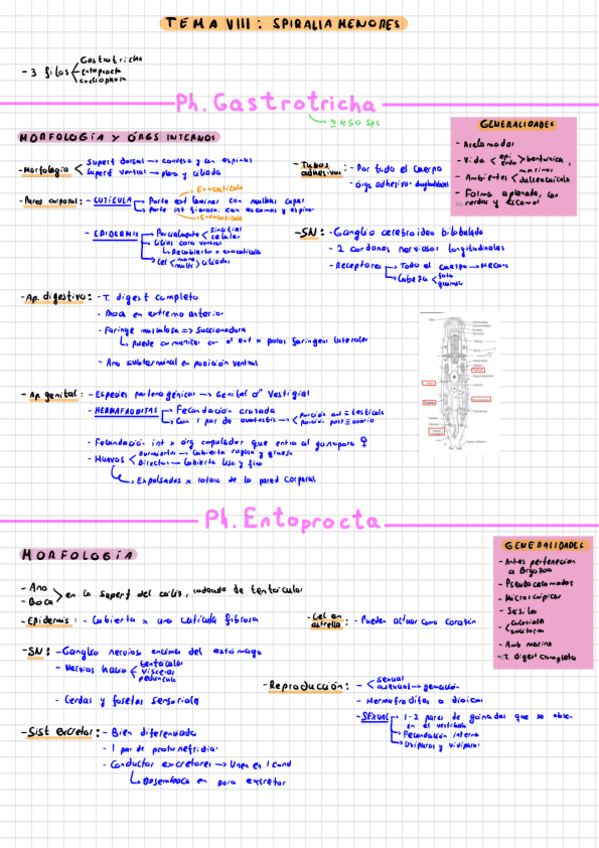 TEMA VIII: SPIRALIA MENORES
- 3 filos < Gastrotricha
Entoprocta
Cycliophora
Ph. Gastrotricha
≈ 450 sps
MORFOLOGÍA Y ÓRGS INTERNOS
- Morfología < Superf dorsal → convexa y con espinas
Superf ventral → plana y ciliada
- Pared corporal: - CUTÍCULA
Exocutícula
Parte ext laminar con muchas capas
Parte int fibrosa, con escamas y espinas
Endocutícula
- EPIDERMIS
Parcialmente < Sincitial
celular
Cilios cara ventral
↳ Recubierto x exocutícula
Cel < mono
multi > ciliadas
- Tubos adhesivos: - Por todo el cuerpo
- Órgs adhesivos duoglandulares
GENERALIDADES
- Acelomados
- Vida < epi
endo > bentónica
- Ambientes < marinos
dulceacuícola
- Forma aplanada, con cerdas y escamas
- SN: - Ganglio cerebroideo bilobulado
- 2 cordones nerviosos longitudinales
- Receptores → Todo el cuerpo → Mecano
Cabeza < foto
quimio
- Ap. digestivo: - T. digest completo
- Boca en extremo anterior
- Faringe musculosa => Succionadora
↳ Puede comunicar con el ext x poros faríngeos laterales
- Ano subterminal en posición ventral
- Ap. genital: - Especies partenogénicas → Genital ♂ Vestigial
- HERMAFRODITAS
Fecundación cruzada
Con 1 par de ovotestis → < Porción ant = testículo
Porción post = ovario
- Fecundación int x órg copulador que entra al gonoporo ♀
- Huevos < Durmientes → Cubierta rugosa y gruesa
Directos → Cubierta lisa y fina
↳ Expulsados x rotura de la pared corporal
Ph. Entoprocta
MORFOLOGÍA
- Ano
- Boca > en la superf del cáliz, rodeado de tentáculos
- Epidermis: - Cubierta x una cutícula fibrosa
- Cel en estrella: - Pueden actuar como corazón
GENERALIDADES
- Antes pertenecían a Bryozoa
- Pseudocelomados
- Microscópicos
- Sésiles
- < Coloniales
solitarios
- Amb marino
- T. digest completo
- SN: - Ganglio nervioso encima del estómago
- Nervios hacia < tentáculos
vísceras
pedúnculo
- Cerdas y fosetas sensoriales
- Reproducción: - < sexual
asexual → gemación
- Hermafroditas o dioicos
- SEXUAL
1-2 pares de gónadas que se abren en el vestíbulo
Fecundación interna
Ovíparos y vivíparos
- Sist excretor: - Bien diferenciado
- 1 par de protonefridios
- Conductos excretores → Unen en 1 cond
↳ Desemboca en poro excretor